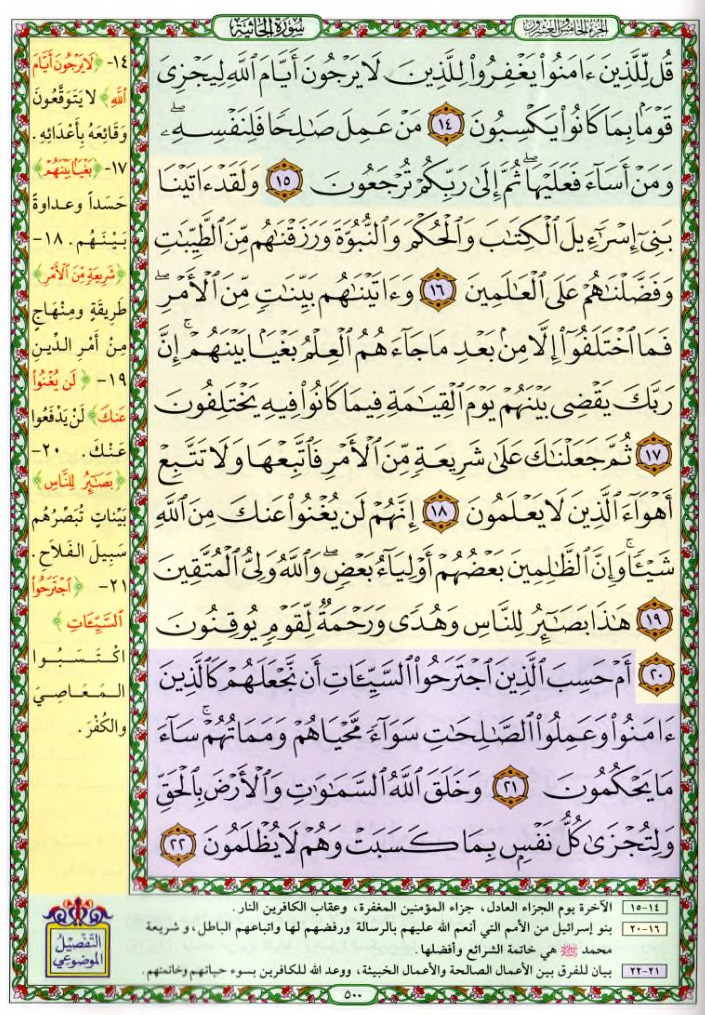 سُورَةُ الجَاثِيَةِ
الجُزءُ الخَامِسُ وَالعِشْرُونَ
قُل لِّلَّذِينَ ءَامَنُوا۟ يَغْفِرُوا۟ لِلَّذِينَ لَا يَرْجُونَ أَيَّامَ ٱللَّهِ لِيَجْزِىَ
قَوْمًۢا بِمَا كَانُوا۟ يَكْسِبُونَ ١٤ مَنْ عَمِلَ صَـٰلِحًا فَلِنَفْسِهِۦ ۖ
وَمَنْ أَسَآءَ فَعَلَيْهَا ۖ ثُمَّ إِلَىٰ رَبِّكُمْ تُرْجَعُونَ ١٥ وَلَقَدْ ءَاتَيْنَا
بَنِىٓ إِسْرَٰٓءِيلَ ٱلْكِتَـٰبَ وَٱلْحُكْمَ وَٱلنُّبُوَّةَ وَرَزَقْنَـٰهُم مِّنَ ٱلطَّيِّبَـٰتِ
وَفَضَّلْنَـٰهُمْ عَلَى ٱلْعَـٰلَمِينَ ١٦ وَءَاتَيْنَـٰهُم بَيِّنَـٰتٍ مِّنَ ٱلْأَمْرِ ۖ
فَمَا ٱخْتَلَفُوٓا۟ إِلَّا مِنۢ بَعْدِ مَا جَآءَهُمُ ٱلْعِلْمُ بَغْيًۢا بَيْنَهُمْ ۚ إِنَّ
رَبَّكَ يَقْضِى بَيْنَهُمْ يَوْمَ ٱلْقِيَـٰمَةِ فِيمَا كَانُوا۟ فِيهِ يَخْتَلِفُونَ
١٧ ثُمَّ جَعَلْنَـٰكَ عَلَىٰ شَرِيعَةٍ مِّنَ ٱلْأَمْرِ فَٱتَّبِعْهَا وَلَا تَتَّبِعْ
أَهْوَآءَ ٱلَّذِينَ لَا يَعْلَمُونَ ١٨ إِنَّهُمْ لَن يُغْنُوا۟ عَنكَ مِنَ ٱللَّهِ
شَيْـًٔا ۚ وَإِنَّ ٱلظَّـٰلِمِينَ بَعْضُهُمْ أَوْلِيَآءُ بَعْضٍ ۖ وَٱللَّهُ وَلِىُّ ٱلْمُتَّقِينَ
١٩ هَـٰذَا بَصَـٰٓئِرُ لِلنَّاسِ وَهُدًى وَرَحْمَةٌ لِّقَوْمٍ يُوقِنُونَ
٢٠ أَمْ حَسِبَ ٱلَّذِينَ ٱجْتَرَحُوا۟ ٱلسَّيِّـَٔاتِ أَن نَّجْعَلَهُمْ كَٱلَّذِينَ
ءَامَنُوا۟ وَعَمِلُوا۟ ٱلصَّـٰلِحَـٰتِ سَوَآءً مَّحْيَاهُمْ وَمَمَاتُهُمْ ۚ سَآءَ
مَا يَحْكُمُونَ ٢١ وَخَلَقَ ٱللَّهُ ٱلسَّمَـٰوَٰتِ وَٱلْأَرْضَ بِٱلْحَقِّ
وَلِتُجْزَىٰ كُلُّ نَفْسٍۭ بِمَا كَسَبَتْ وَهُمْ لَا يُظْلَمُونَ ٢٢
١٤- ﴿لَا يَرْجُونَ أَيَّامَ
ٱللَّهِ﴾ لا يَتَوَقَّعُونَ
وَقَائِعَهُ بِأَعْدَائِهِ.
١٧- ﴿بَغْيًۢا بَيْنَهُمْ﴾
حَسَداً وعداوةً
بَيْنَهُم. ١٨-
﴿شَرِيعَةٍ مِّنَ ٱلْأَمْرِ﴾
طَرِيقَةٍ ومِنْهَاجٍ
مِنْ أَمْرِ الدِّينِ
١٩- ﴿لَن يُغْنُوا۟
عَنكَ﴾ لَنْ يَدْفَعُوا
عَنْكَ. ٢٠-
﴿بَصَـٰٓئِرُ لِلنَّاسِ﴾
بَيِّنَاتٍ تُبَصِّرُهُم
سَبِيلَ الفَلَاحِ.
٢١- ﴿ٱجْتَرَحُوا۟
ٱلسَّيِّـَٔاتِ﴾
اكْتَسَبُوا
المَعَاصِيَ
والكُفْرَ.
التَّفْصِيلُ
الموضوعي
١٤-١٥ الآخرة يوم الجزاء العادل، جزاء المؤمنين المغفرة، وعقاب الكافرين النار.
١٦-٢٠ بنو إسرائيل من الأمم التي أنعم الله عليهم بالرسالة ورفضهم لها واتباعهم الباطل، و شريعة
محمد ﷺ هي خاتمة الشرائع وأفضلها.
٢١-٢٢ بيان للفرق بين الأعمال الصالحة والأعمال الخبيثة، ووعد الله للكافرين بسوء حياتهم وخاتمتهم.
٥٠٠